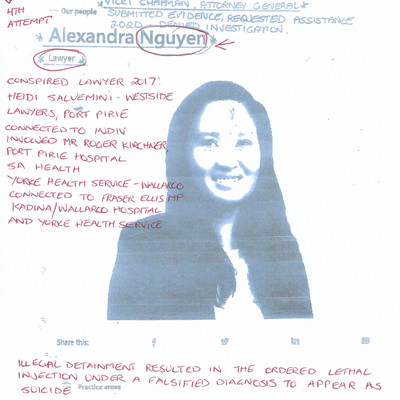 4TH
ATTEMPT
Our people
VICKI CHAPMAN, ATTORNEY GENERAL
SUBMITTED EVIDENCE, REQUESTED ASSISTANCE
2020 - DENIED INVESTIGATION.
Alexandra Nguyen
Lawyer
CONSPIRED LAWYER 2017:
HEIDI SALVEMINI - WESTSIDE
LAWYERS, PORT PIRIE
CONNECTED TO INDIV
INVOLVED MR ROGER KIRCHNER
PORT PIRIE HOSPITAL
SA HEALTH
YORKE HEALTH SERVICE - WALLAROO
CONNECTED TO FRASER ELLIS MP
KADINA/WALLAROO HOSPITAL
AND YORKE HEALTH SERVICE
Share this:
ILLEGAL DETAINMENT RESULTED IN THE ORDERED LETHAL
INJECTION UNDER A FALSIFIED DIAGNOSIS TO APPEAR AS
SUICIDE
Practice areas